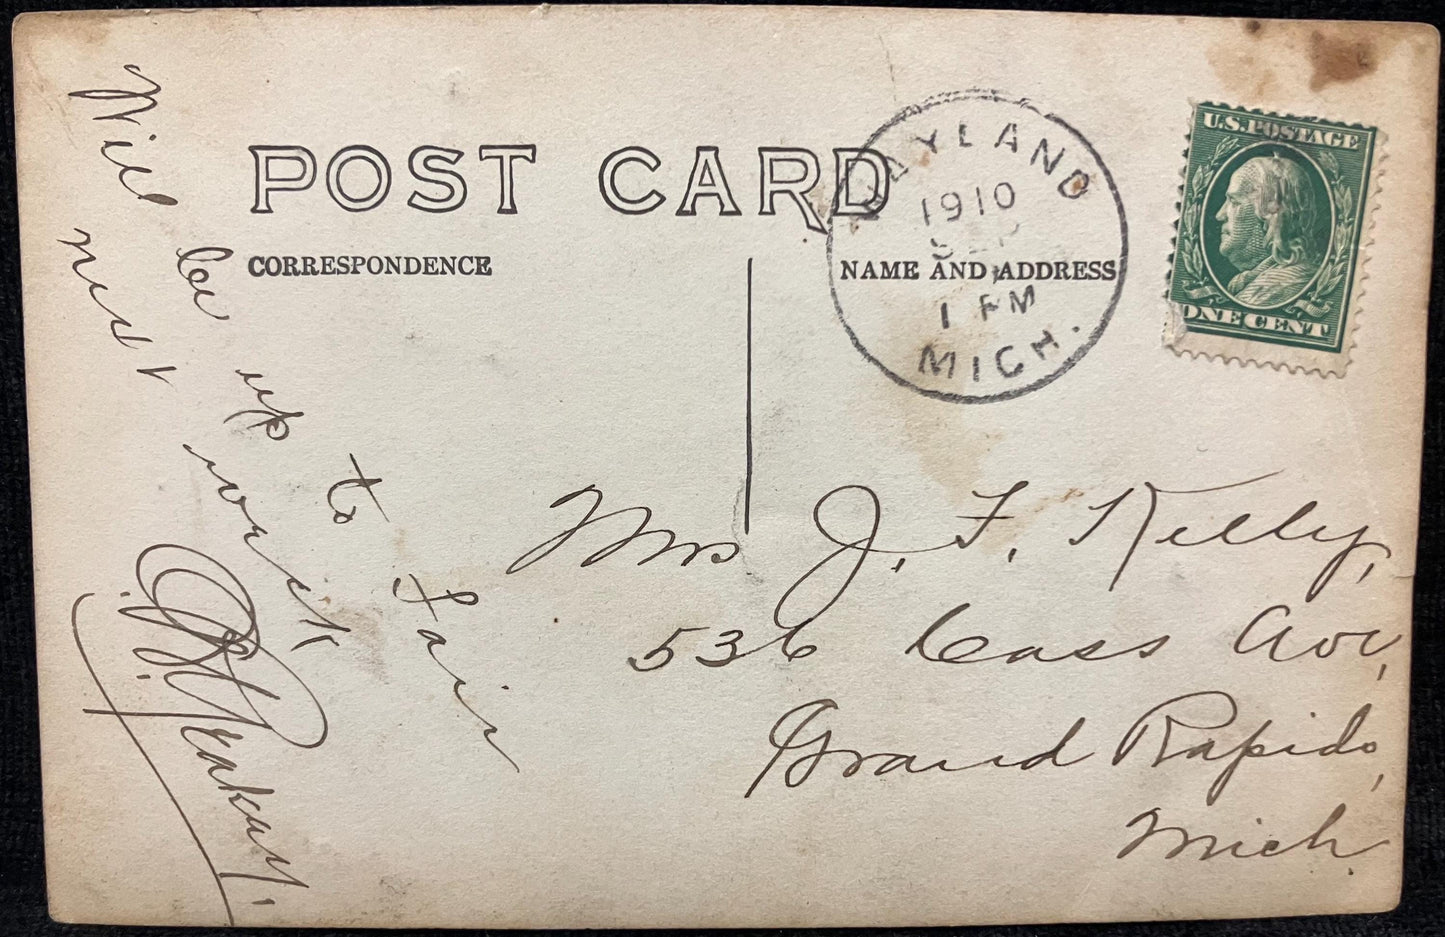 POST CARD
CORRESPONDENCE
NAME AND ADDRESS
WAYLAND
1910
SEP
1 PM
MICH.
U.S. POSTAGE
ONE CENT
Will be up to Fair
next week
Mrs J. F. Kelly,
536 Cass Ave,
Grand Rapids,
Mich.